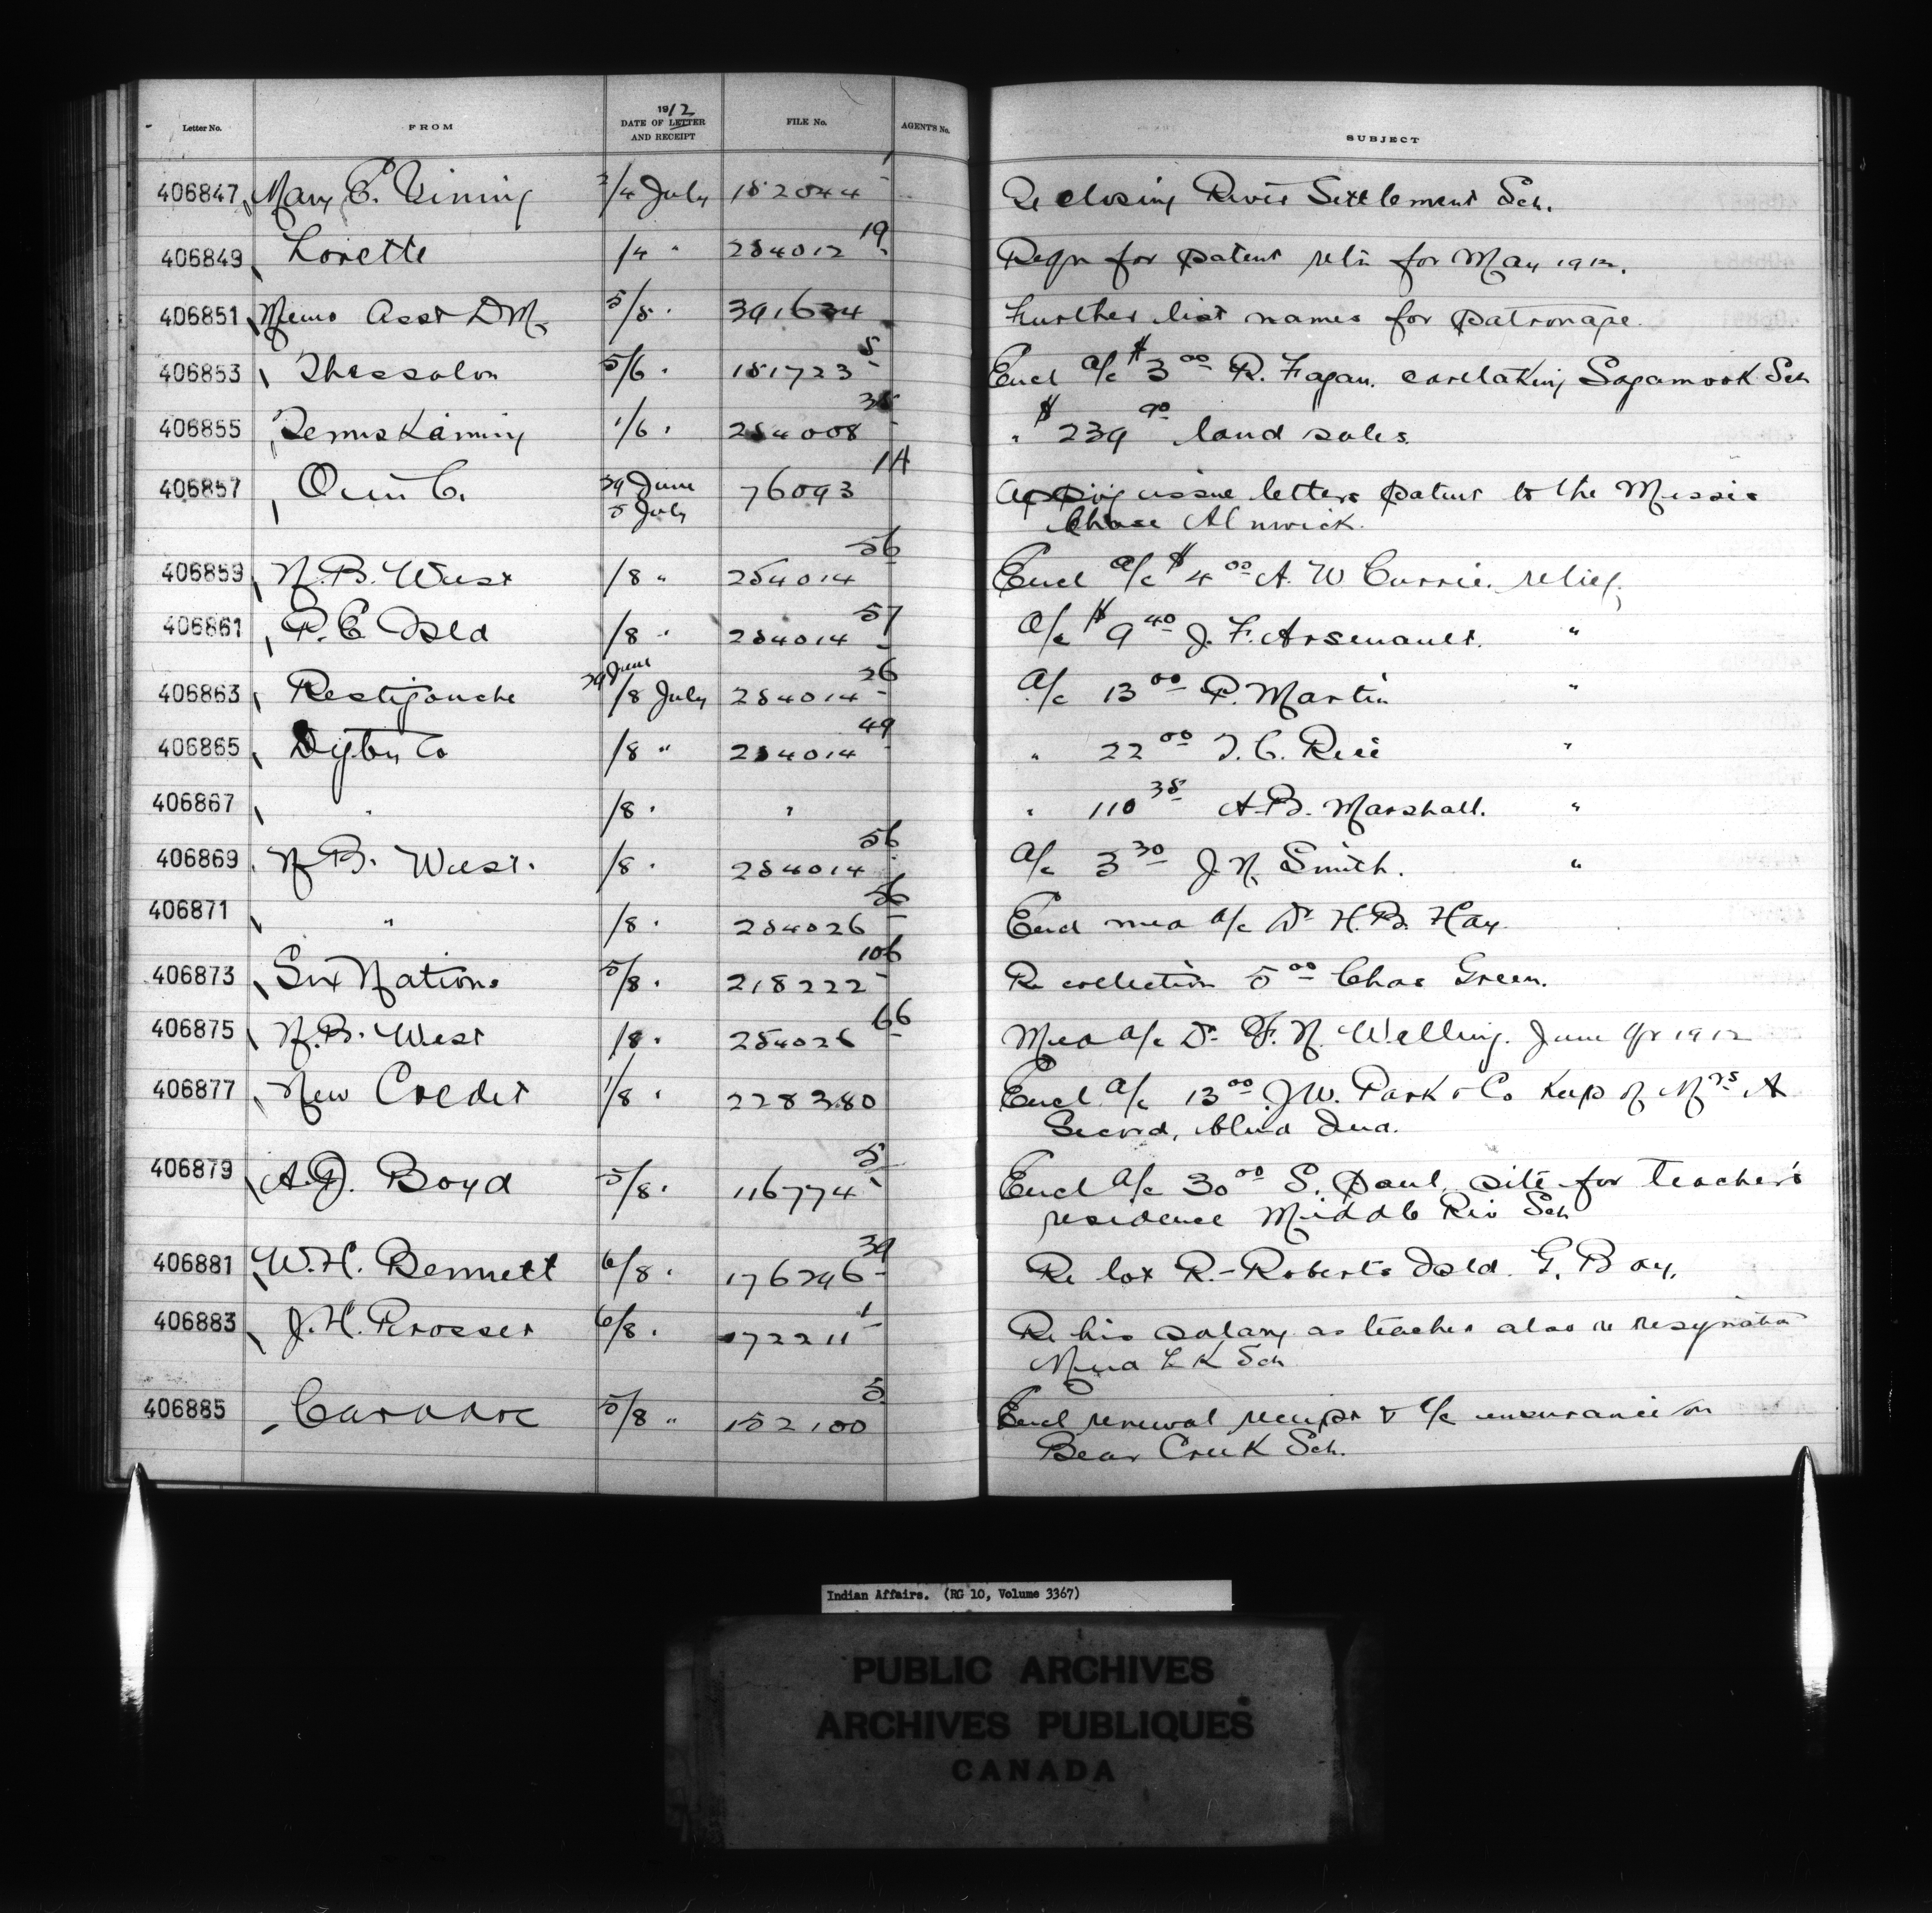 Letter No. FROM 1912 DATE OF LETTER AND RECEIPT FILE No. AGENT'S No. SUBJECT
406847 Mary E. Vining 2/4 July 152044 1 Re closing River Settlement Sch.
406849 Lorette /4 " 254012 19 Reqn for patent retn for May 1912.
406851 Memo Asst DM 5/5 " 391634 Further list names for patronage.
406853 Thessalon 5/6 " 151723 5 Encl a/c $3 00 R. Fagan. caretaking Sagamook Sch
406855 Temiskaming 1/6 " 254008 35 " $239 90 land sales.
406857 O in C. 29 June 5 July 76093 14 issue letters patent to the Missis
Chase Alnwick.
406859 N.B. West /8 " 254014 56 Encl a/c $4 00 A. W Currie. relief.
406861 P. E Isld /8 " 254014 57 a/c $9 40 J. F. Arsenault. "
406863 Restigouche 29 June /8 July 254014 26 a/c 13 00 P. Martin "
406865 Digby Co /8 " 254014 49 " 22 00 T. C. Rice "
406867 " /8 " " " 110 35 A. B. Marshall. "
406869 N. B. West. /8 " 254014 56 a/c 3 30 J. N. Smith. "
406871 " /8 " 254026 56 Encl med a/c Dr H. B. Hay.
406873 Six Nations 5/8 " 218222 106 Re collection 5 00 Chas Green.
406875 N. B. West /8 " 254026 66 Med a/c Dr F. N. Welling. June qr 1912
406877 New Credit 1/8 " 228380 Encl a/c 13 00 J W. Park & Co keep of Mrs A
Secord, blind Ind.
406879 A. J. Boyd 5/8 " 116774 5 Encl a/c 30 00 S. Paul, site for teacher's
residence Middle Riv Sch
406881 W. H. Bennett 6/8 " 176296 39 Re lot R.- Roberts Isld. G. Bay.
406883 J. H. Prosser 6/8 " 172211 1 Re his salary as teacher also re resignation
Mud L K Sch
406885 Caradoc 5/8 " 152100 5 Encl renewal receipt & a/c insurance on
Bear Creek Sch.
Indian Affairs. (RG 10, Volume 3367)
PUBLIC ARCHIVES
ARCHIVES PUBLIQUES
CANADA